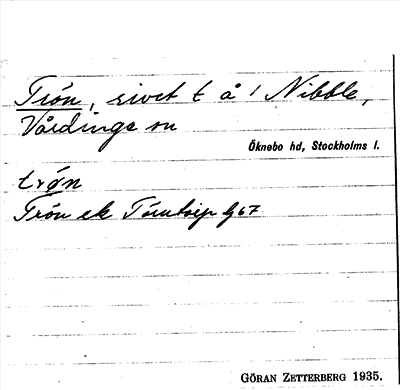 Trön, sivet t å i Nibble,
Vårdinge sn
Öknebo hd, Stockholms l.
trøn
Trön ek
GÖRAN ZETTERBERG 1935.